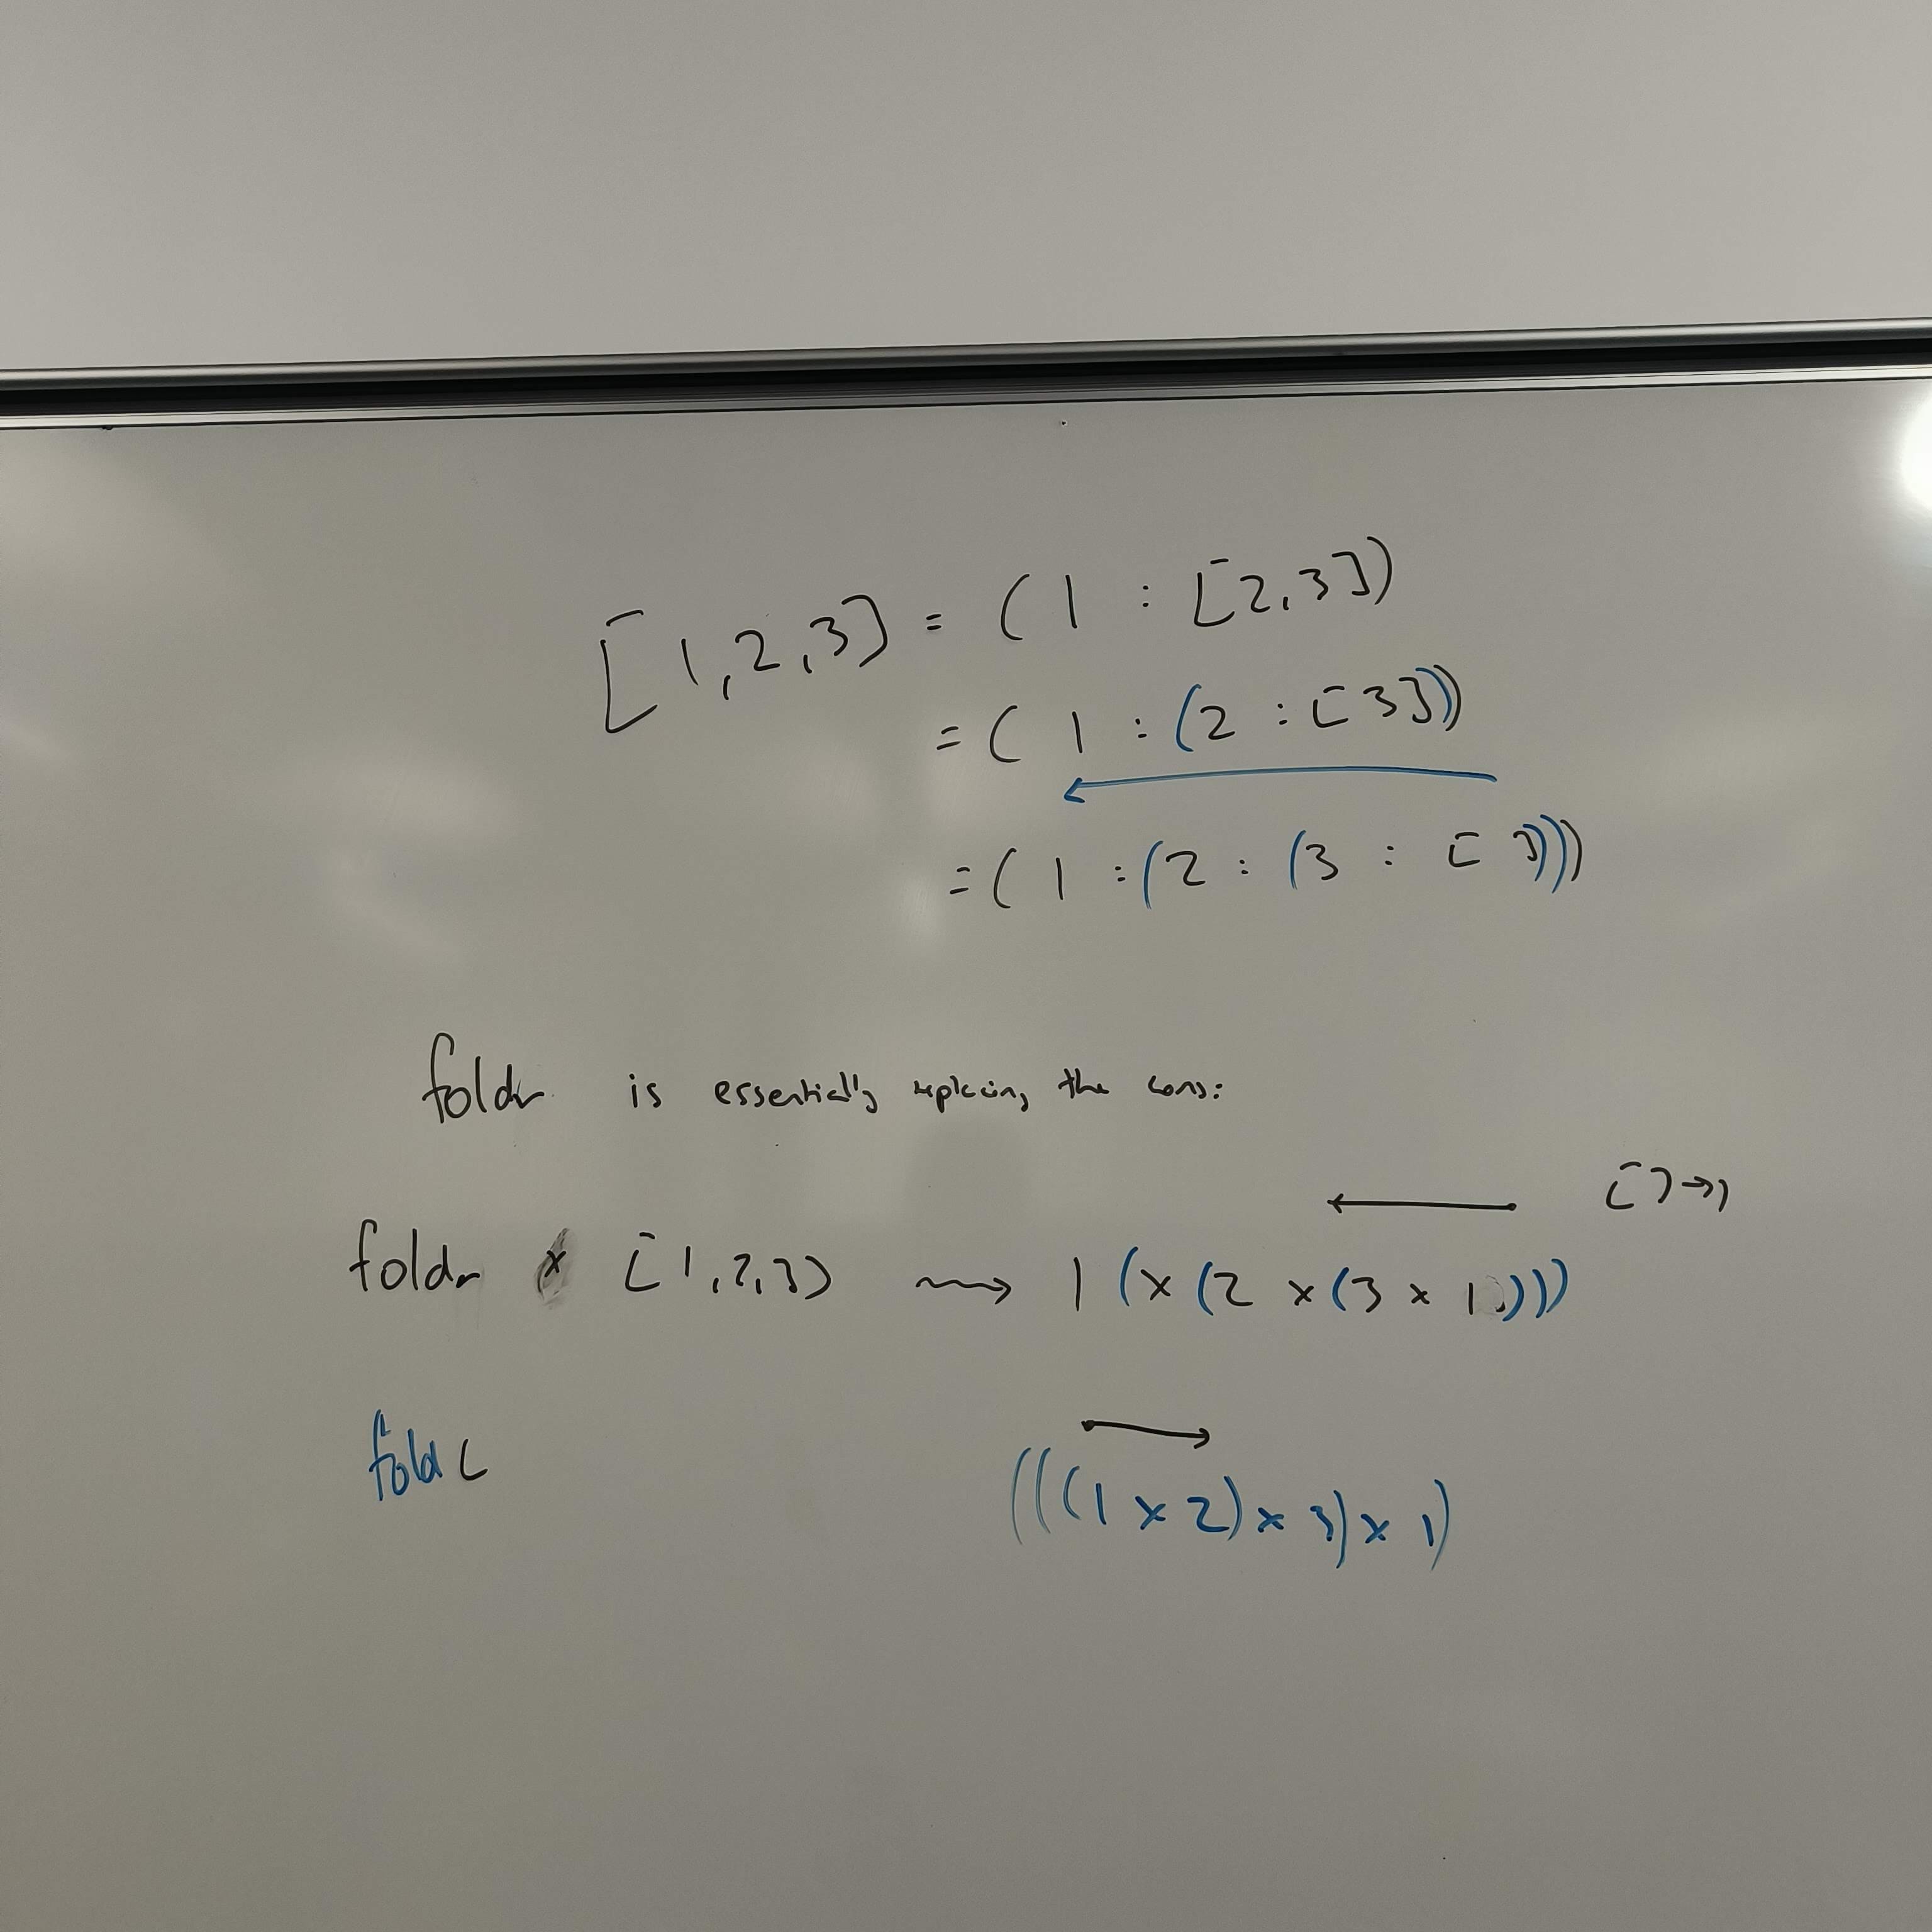 [1,2,3] = (1 : [2,3])
= (1 : (2 : [3]))
= (1 : (2 : (3 : [])))
foldr is essentially replacing the cons:
[] → 1
foldr × [1,2,3] ⇝ 1 (× (2 × (3 × 1)))
foldl (((1 × 2) × 3) × 1)